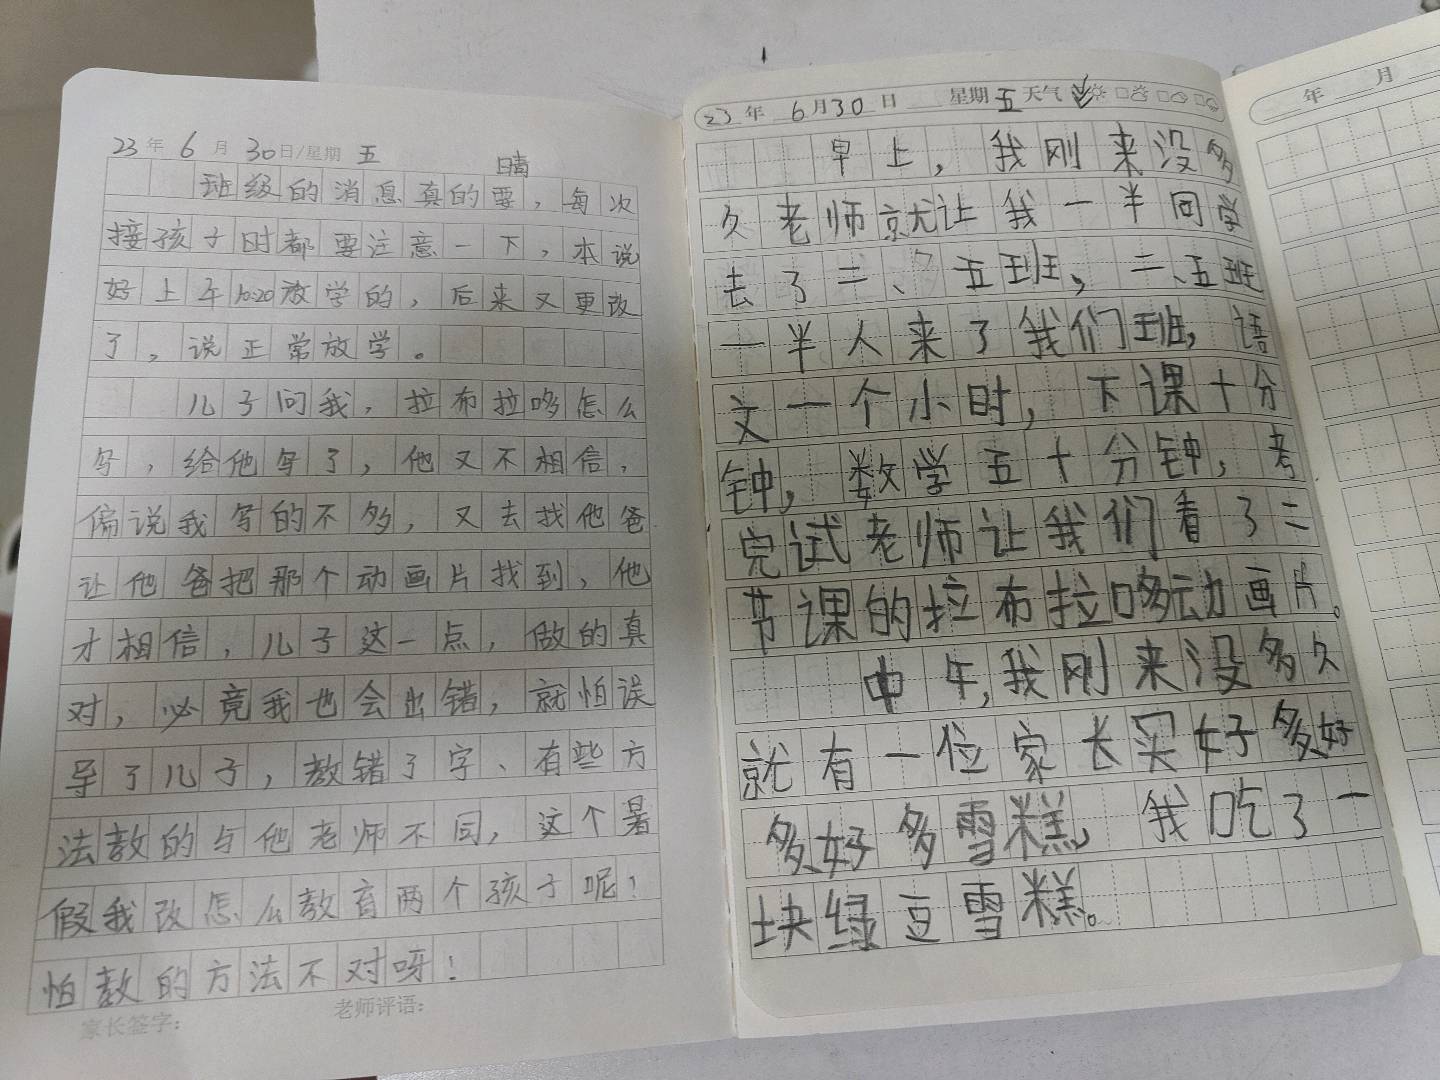 23年 6月 30日/星期 五
晴
班级的消息真的要，每次
接孩子时都要注意一下，本说
好上午10:20放学的，后来又更改
了，说正常放学。
儿子问我，拉布拉哆怎么
写，给他写了，他又不相信，
偏说我写的不多，又去找他爸
让他爸把那个动画片找到，他
才相信，儿子这一点，做的真
对，必竟我也会出错，就怕误
导了儿子，教错了字、有些方
法教的与他老师不同，这个暑
假我改怎么教育两个孩子呢！
怕教的方法不对呀！
家长签字：
老师评语：
23年 6月30日 星期五 天气
早上，我刚来没多
久老师就让我一半同学
去了二、五班，二、五班
一半人来了我们班，语
文一个小时，下课十分
钟，数学五十分钟，考
完试老师让我们看了二
节课的拉布拉哆动画片。
中午，我刚来没多久
就有一位家长买好多好
多好多雪糕，我吃了一
块绿豆雪糕。
年 月